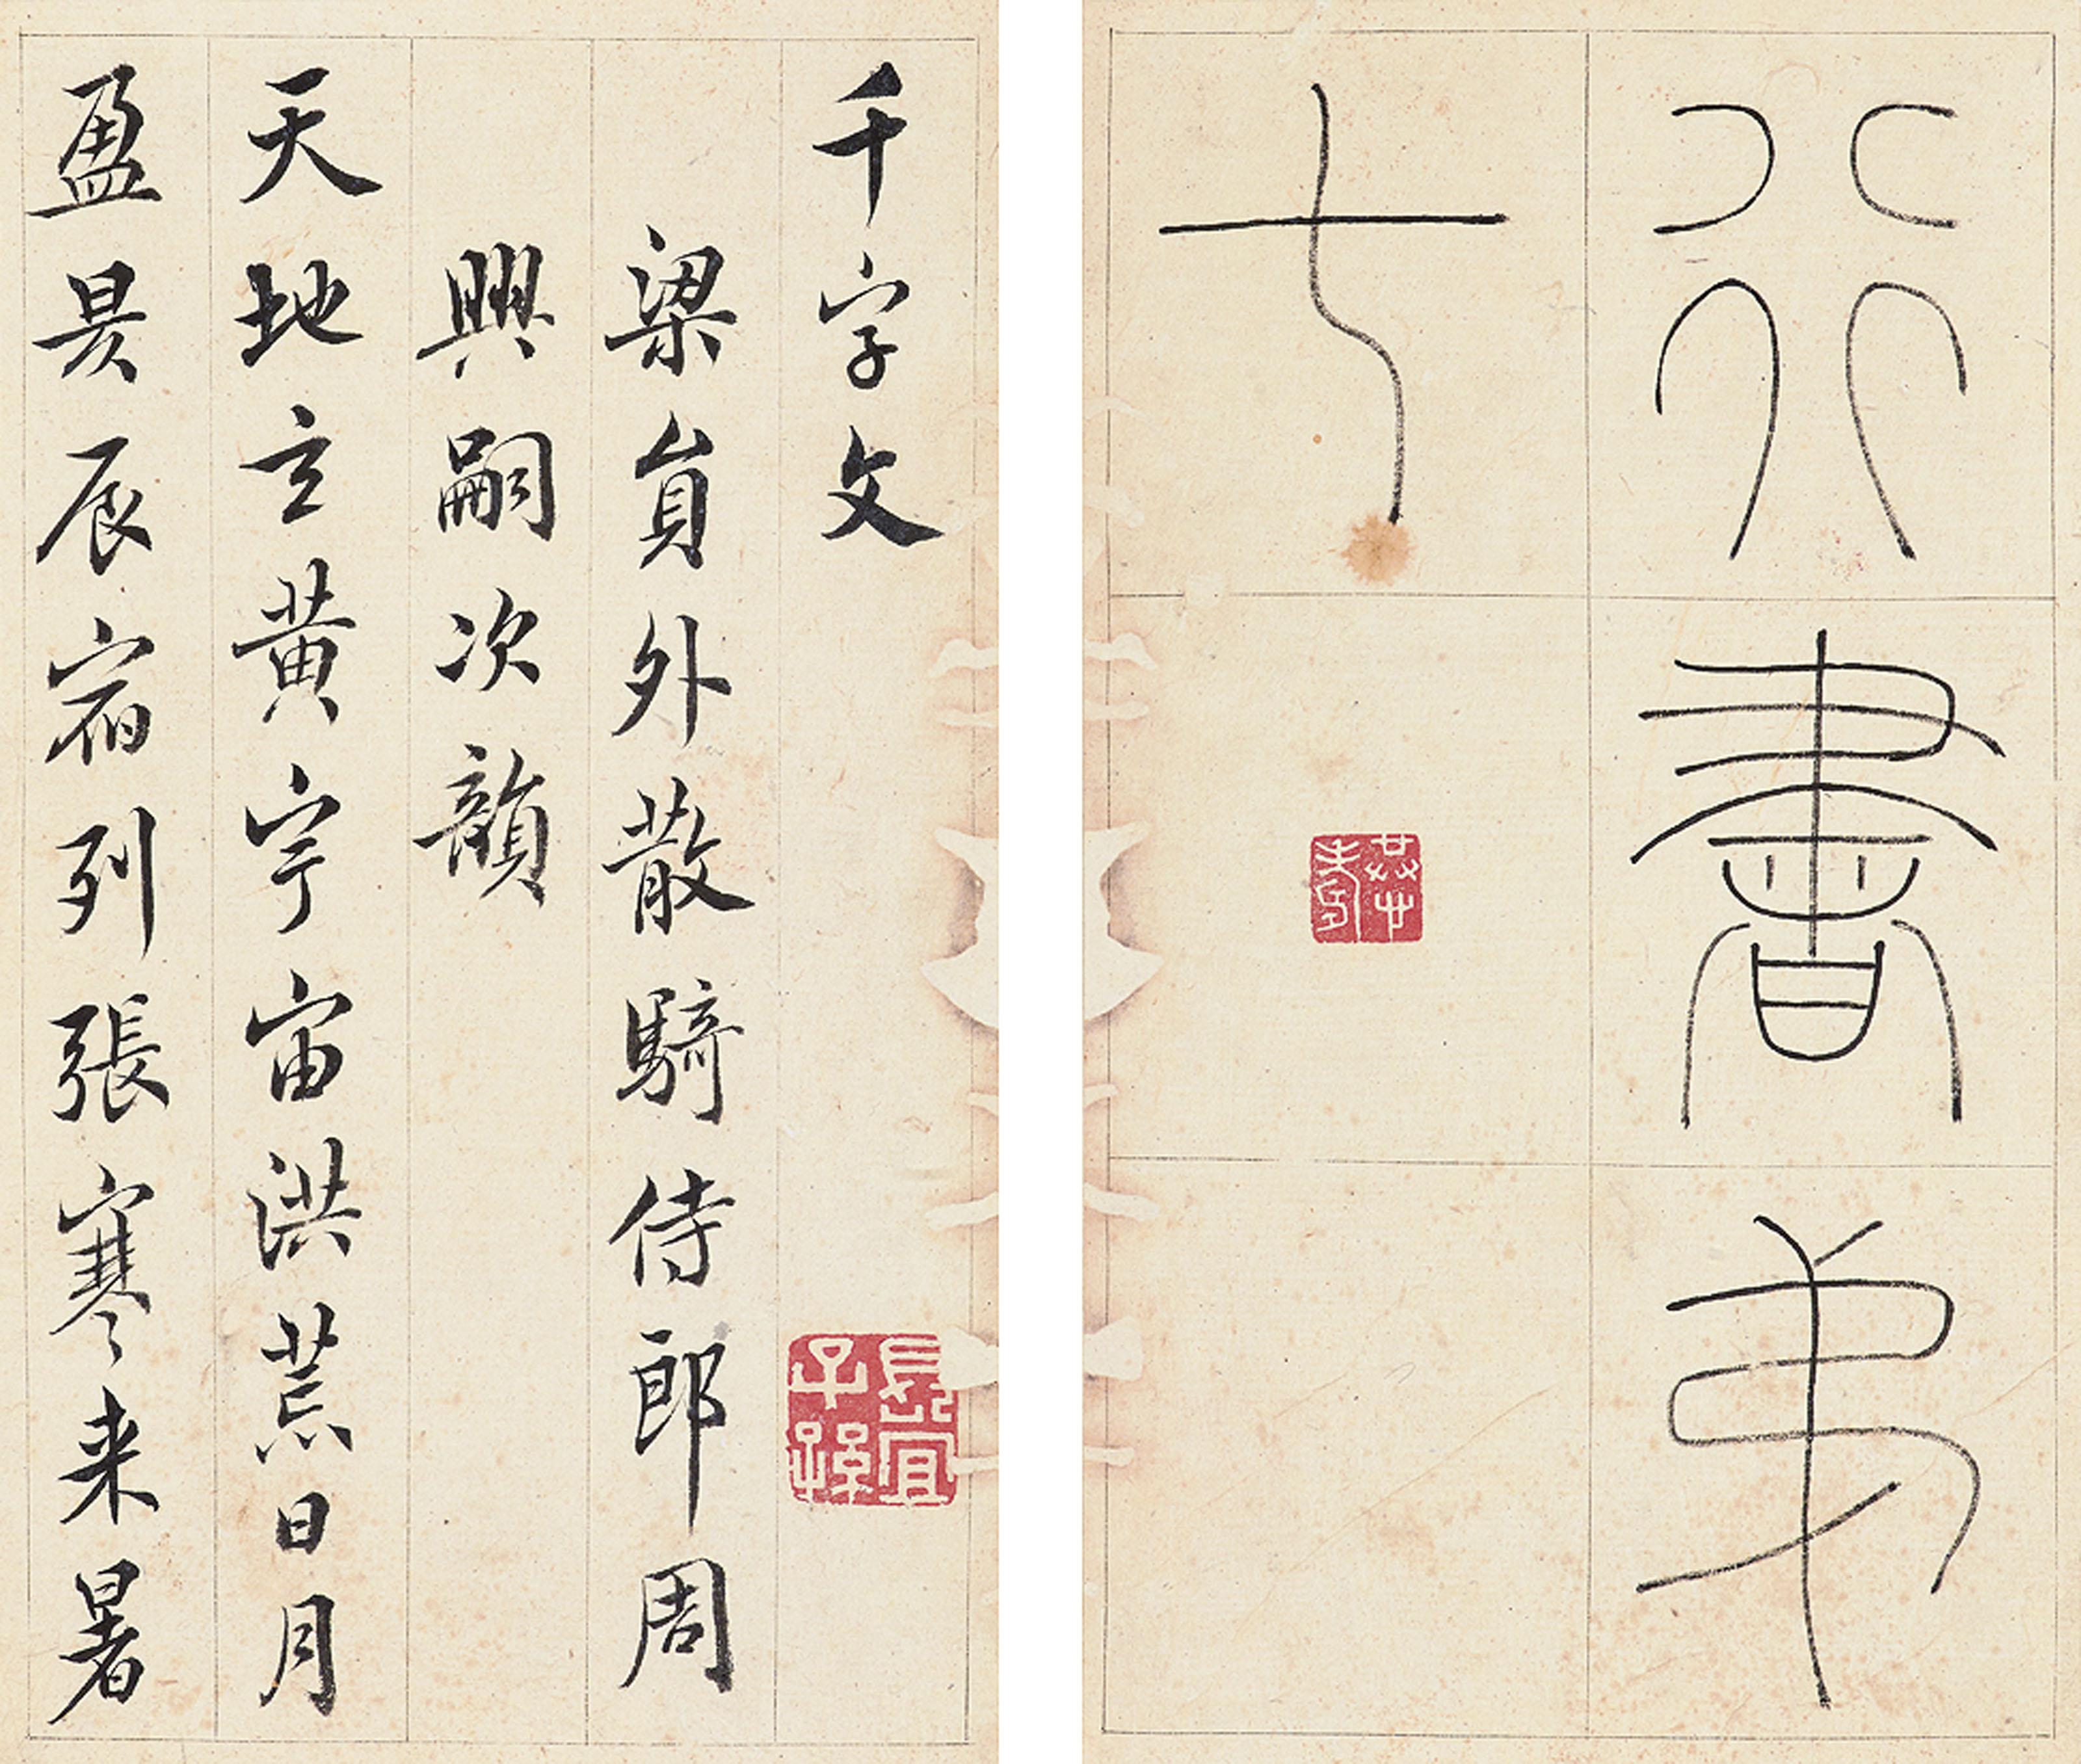 行書弟
七
千字文
長宜子孫
梁貟外散騎侍郎周
興嗣次韻
天地玄黄宇宙洪荒日月
盈昃辰宿列張寒来暑